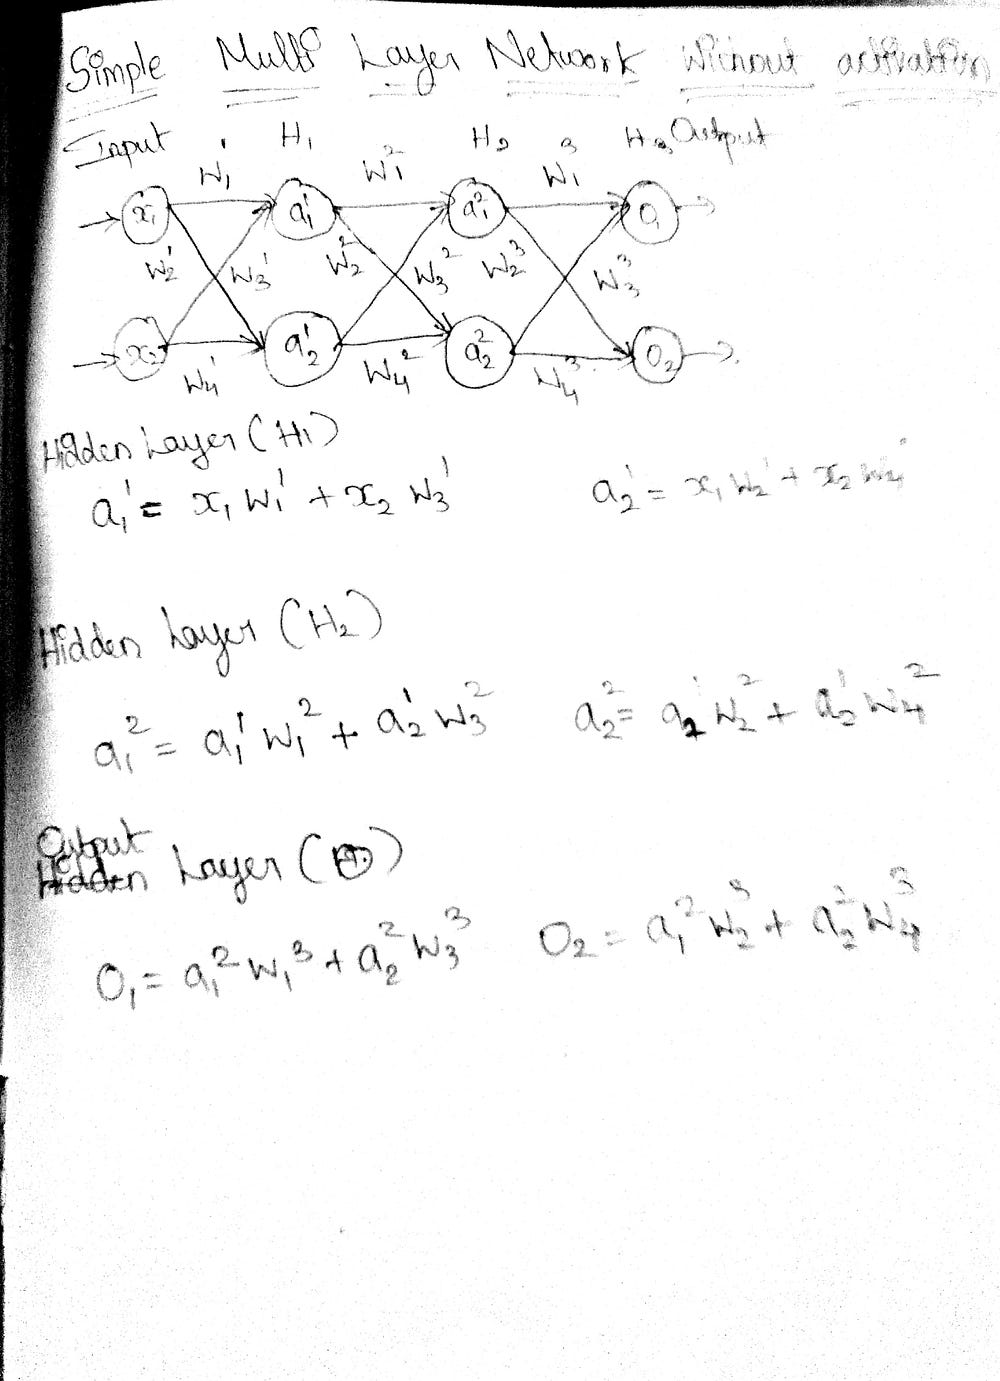 Simple Multi Layer Network Without activation
Input H₁ H₂ H₃ Output
W₁¹ W₁² W₁³
x₁ a₁¹ a₁² O₁
W₂¹ W₃¹ W₂² W₃² W₂³ W₃³
x₂ a₂¹ a₂² O₂
W₄¹ W₄² W₄³
Hidden Layer (H₁)
a₁¹ = x₁ W₁¹ + x₂ W₃¹ a₂¹ = x₁ W₂¹ + x₂ W₄¹
Hidden Layer (H₂)
a₁² = a₁¹ W₁² + a₂¹ W₃² a₂² = a₁¹ W₂² + a₂¹ W₄²
Output
Hidden Layer (O)
O₁ = a₁² W₁³ + a₂² W₃³ O₂ = a₁² W₂³ + a₂² W₄³